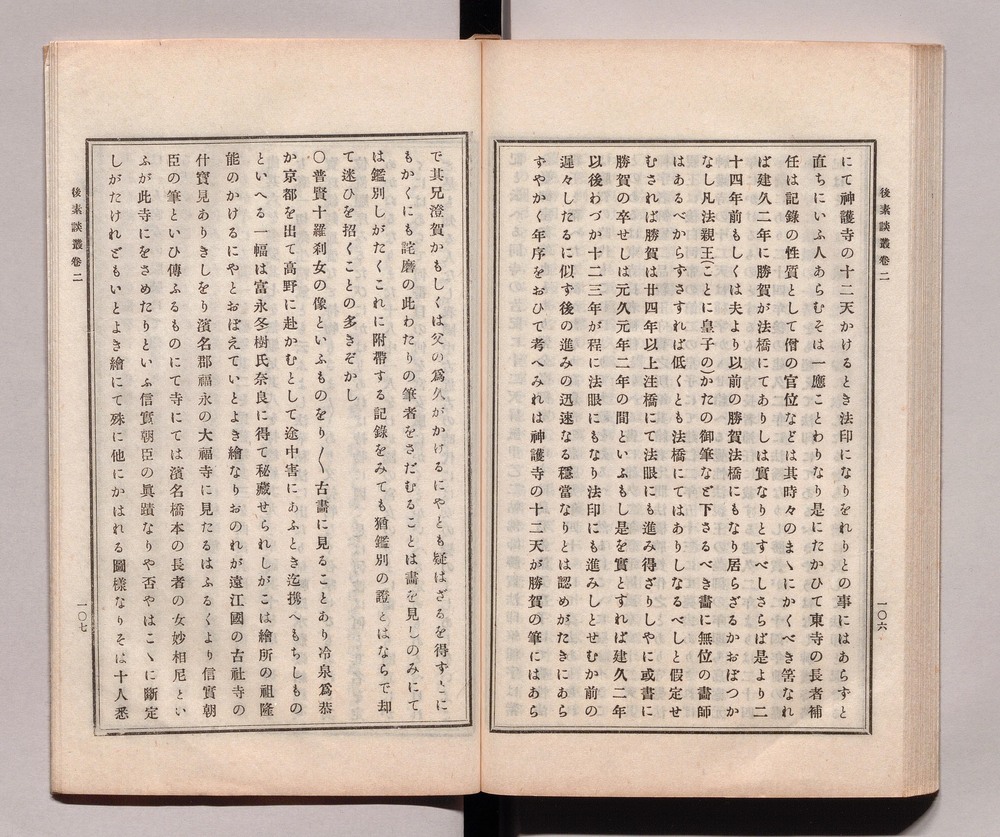 後素談叢卷二
一〇六
にて神護寺の十二天かけるとき法印になりをれりとの事にはあらすと
直ちにいふ人あらむそは一應ことわりなり是にたかひて東寺の長者補
任は記錄の性質として僧の官位などは其時々のまヽにかくべき筈なれ
ば建久二年に勝賀が法橋にてありしは實なりとすべしさらば是より二
十四年前もしくは夫より以前の勝賀法橋にもなり居らざるかおぼつか
なし凡法親王(ことに皇子の)かたの御筆など下さるべき畵に無位の畵師
はあるべからずさすれば低くとも法橋にてはありしなるべしと假定せ
むされば勝賀は廿四年以上法橋にて法眼にも進み得ざりしやに或書に
勝賀の卒せしは元久元年二年の間といふもし是を實とすれば建久二年
以後わづか十二三年が程に法眼にもなり法印にも進みしとせむか前の
遲々したるに似ず後の進みの迅速なる穩當なりとは認めがたきにあら
すやかく年序をおひて考へみれは神護寺の十二天が勝賀の筆にはあら
で其兄澄賀かもしくは父の爲久がかけるにやとも疑はざるを得すとに
もかくにも詫磨の此わたりの筆者をさだむることは畵を見しのみにて
は鑑別しがたくこれに附帶する記錄をみても猶鑑別の證とはならで却
て迷ひを招くことの多きぞかし
〇普賢十羅刹女の像といふものをり〱古畵に見ることあり冷泉爲恭
か京都を出て高野に赴かむとして途中害にあふとき迄携へもちしもの
といへる一幅は富永冬樹氏奈良に得て秘藏せられしがこは繪所の祖隆
能のかけるにやとおぼえていとよき繪なりおのれが遠江國の古社寺の
什寶見ありきしをり濱名郡福永の大福寺に見たるはふるくより信實朝
臣の筆といひ傳ふるものにて寺にては濱名橋本の長者の女妙相尼とい
ふが此寺にをさめたりといふ信實朝臣の眞蹟なりや否やはこヽに斷定
しがたけれどもいとよき繪にて殊に他にかはれる圖樣なりそは十人悉
後素談叢卷二
一〇七